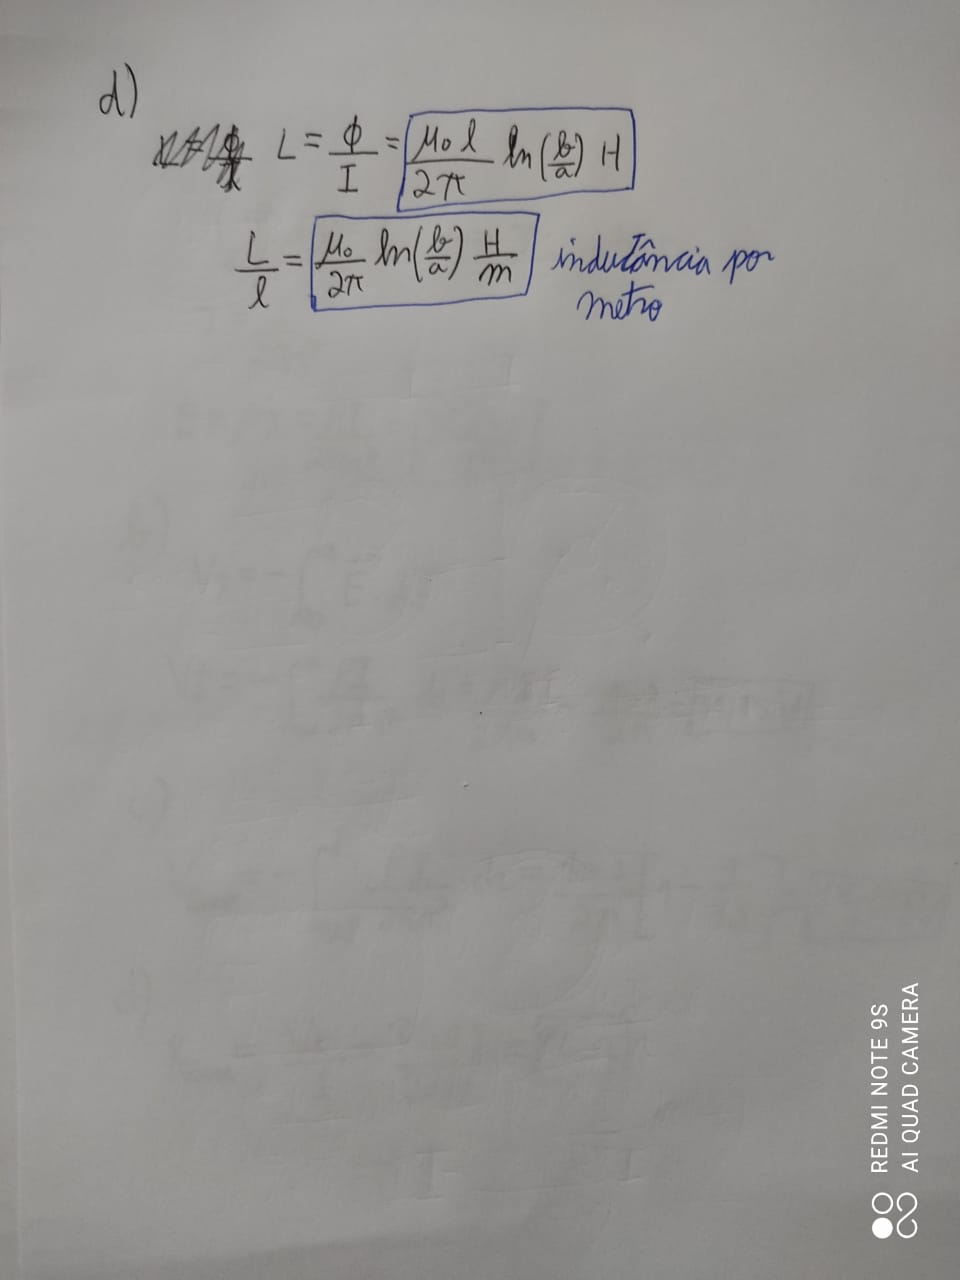 d)
L = ϕ/I = μ₀ l/2π ln(b/a) H
L/l = μ₀/2π ln(b/a) H/m indutância por
metro
REDMI NOTE 9S
AI QUAD CAMERA